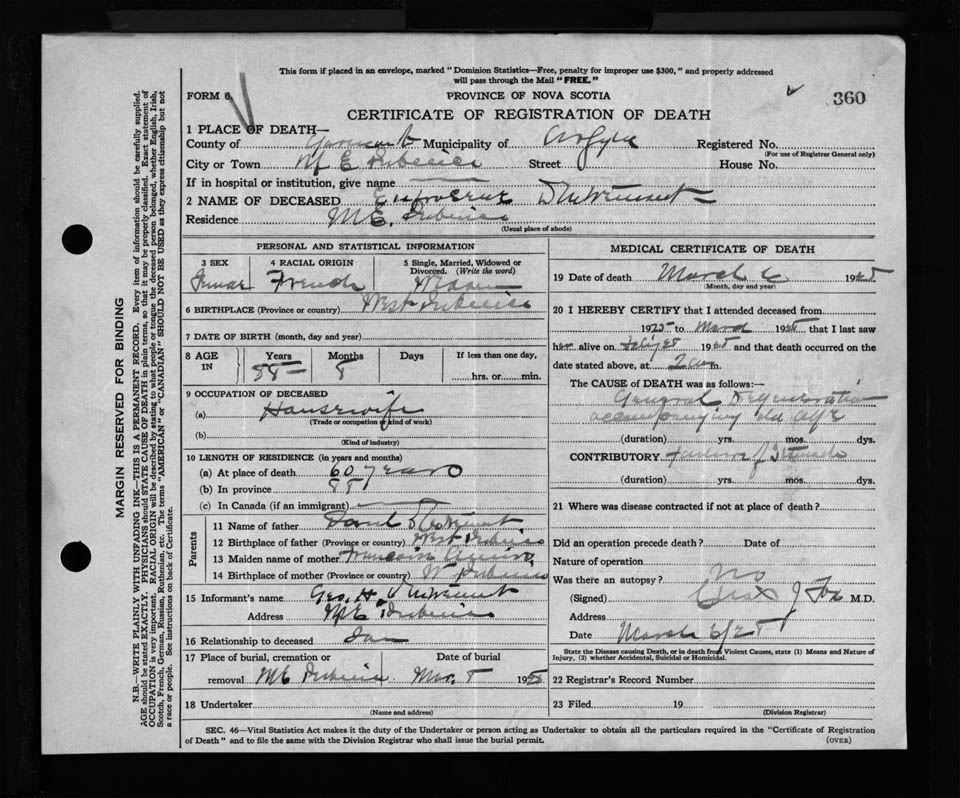 This form if placed in an envelope, marked "Dominion Statistics—Free, penalty for improper use $300," and properly addressed
will pass through the Mail "FREE."
FORM 6
PROVINCE OF NOVA SCOTIA
360
CERTIFICATE OF REGISTRATION OF DEATH
1 PLACE OF DEATH—
County of Yarmouth Municipality of Argyle Registered No.
(For use of Registrar General only)
City or Town M E Pubnico Street House No.
If in hospital or institution, give name
2 NAME OF DECEASED D'Entremont
Residence M E. Pubnico
(Usual place of abode)
PERSONAL AND STATISTICAL INFORMATION
3 SEX 4 RACIAL ORIGIN 5 Single, Married, Widowed or Divorced. (Write the word)
French
6 BIRTHPLACE (Province or country) West Pubnico
7 DATE OF BIRTH (month, day and year)
8 AGE IN Years Months Days If less than one day,
8 hrs. or min.
9 OCCUPATION OF DECEASED
(a) Housewife
(Trade or occupation of kind of work)
(b)
(Kind of industry)
10 LENGTH OF RESIDENCE (in years and months)
(a) At place of death 60 years
(b) In province
(c) In Canada (if an immigrant)
Parents
11 Name of father D'Entremont
12 Birthplace of father (Province or country) West Pubnico
13 Maiden name of mother
14 Birthplace of mother (Province or country) W Pubnico
15 Informant's name Geo. H. D'Entremont
Address M E Pubnico
16 Relationship to deceased Son
17 Place of burial, cremation or Date of burial
removal M E Pubnico Mar. 8 19
18 Undertaker
(Name and address)
MEDICAL CERTIFICATE OF DEATH
19 Date of death March 6 19
(Month, day and year)
20 I HEREBY CERTIFY that I attended deceased from
19 to March 19 that I last saw
her alive on 19 and that death occurred on the
date stated above, at 2 a m.
The CAUSE of DEATH was as follows:—
General Degeneration
accompanying old age
(duration) yrs. mos. dys.
CONTRIBUTORY Failure of
(duration) yrs. mos. dys.
21 Where was disease contracted if not at place of death?
Did an operation precede death? Date of
Nature of operation
Was there an autopsy? No
(Signed) J Fox M.D.
Address
Date March 6/25
State the Disease causing Death, or in death from Violent Causes, state (1) Means and Nature of
Injury, (2) whether Accidental, Suicidal or Homicidal.
22 Registrar's Record Number
23 Filed 19
(Division Registrar)
SEC. 46—Vital Statistics Act makes it the duty of the Undertaker or person acting as Undertaker to obtain all the particulars required in the "Certificate of Registration
of Death" and to file the same with the Division Registrar who shall issue the burial permit.
(OVER)
MARGIN RESERVED FOR BINDING
N.B.—WRITE PLAINLY WITH UNFADING INK—THIS IS A PERMANENT RECORD. Every item of information should be carefully supplied.
AGE should be stated EXACTLY. PHYSICIANS should STATE CAUSE OF DEATH in plain terms, so that it may be properly classified. Exact statement of
OCCUPATION is very important. RACIAL ORIGIN will be described by stating to what people or tongue the deceased person belonged, whether English, Irish,
Scotch, French, German, Russian, Ruthenian, etc. The terms "AMERICAN" or "CANADIAN" SHOULD NOT BE USED as they express citizenship but not
a race or people. See instructions on back of Certificate.